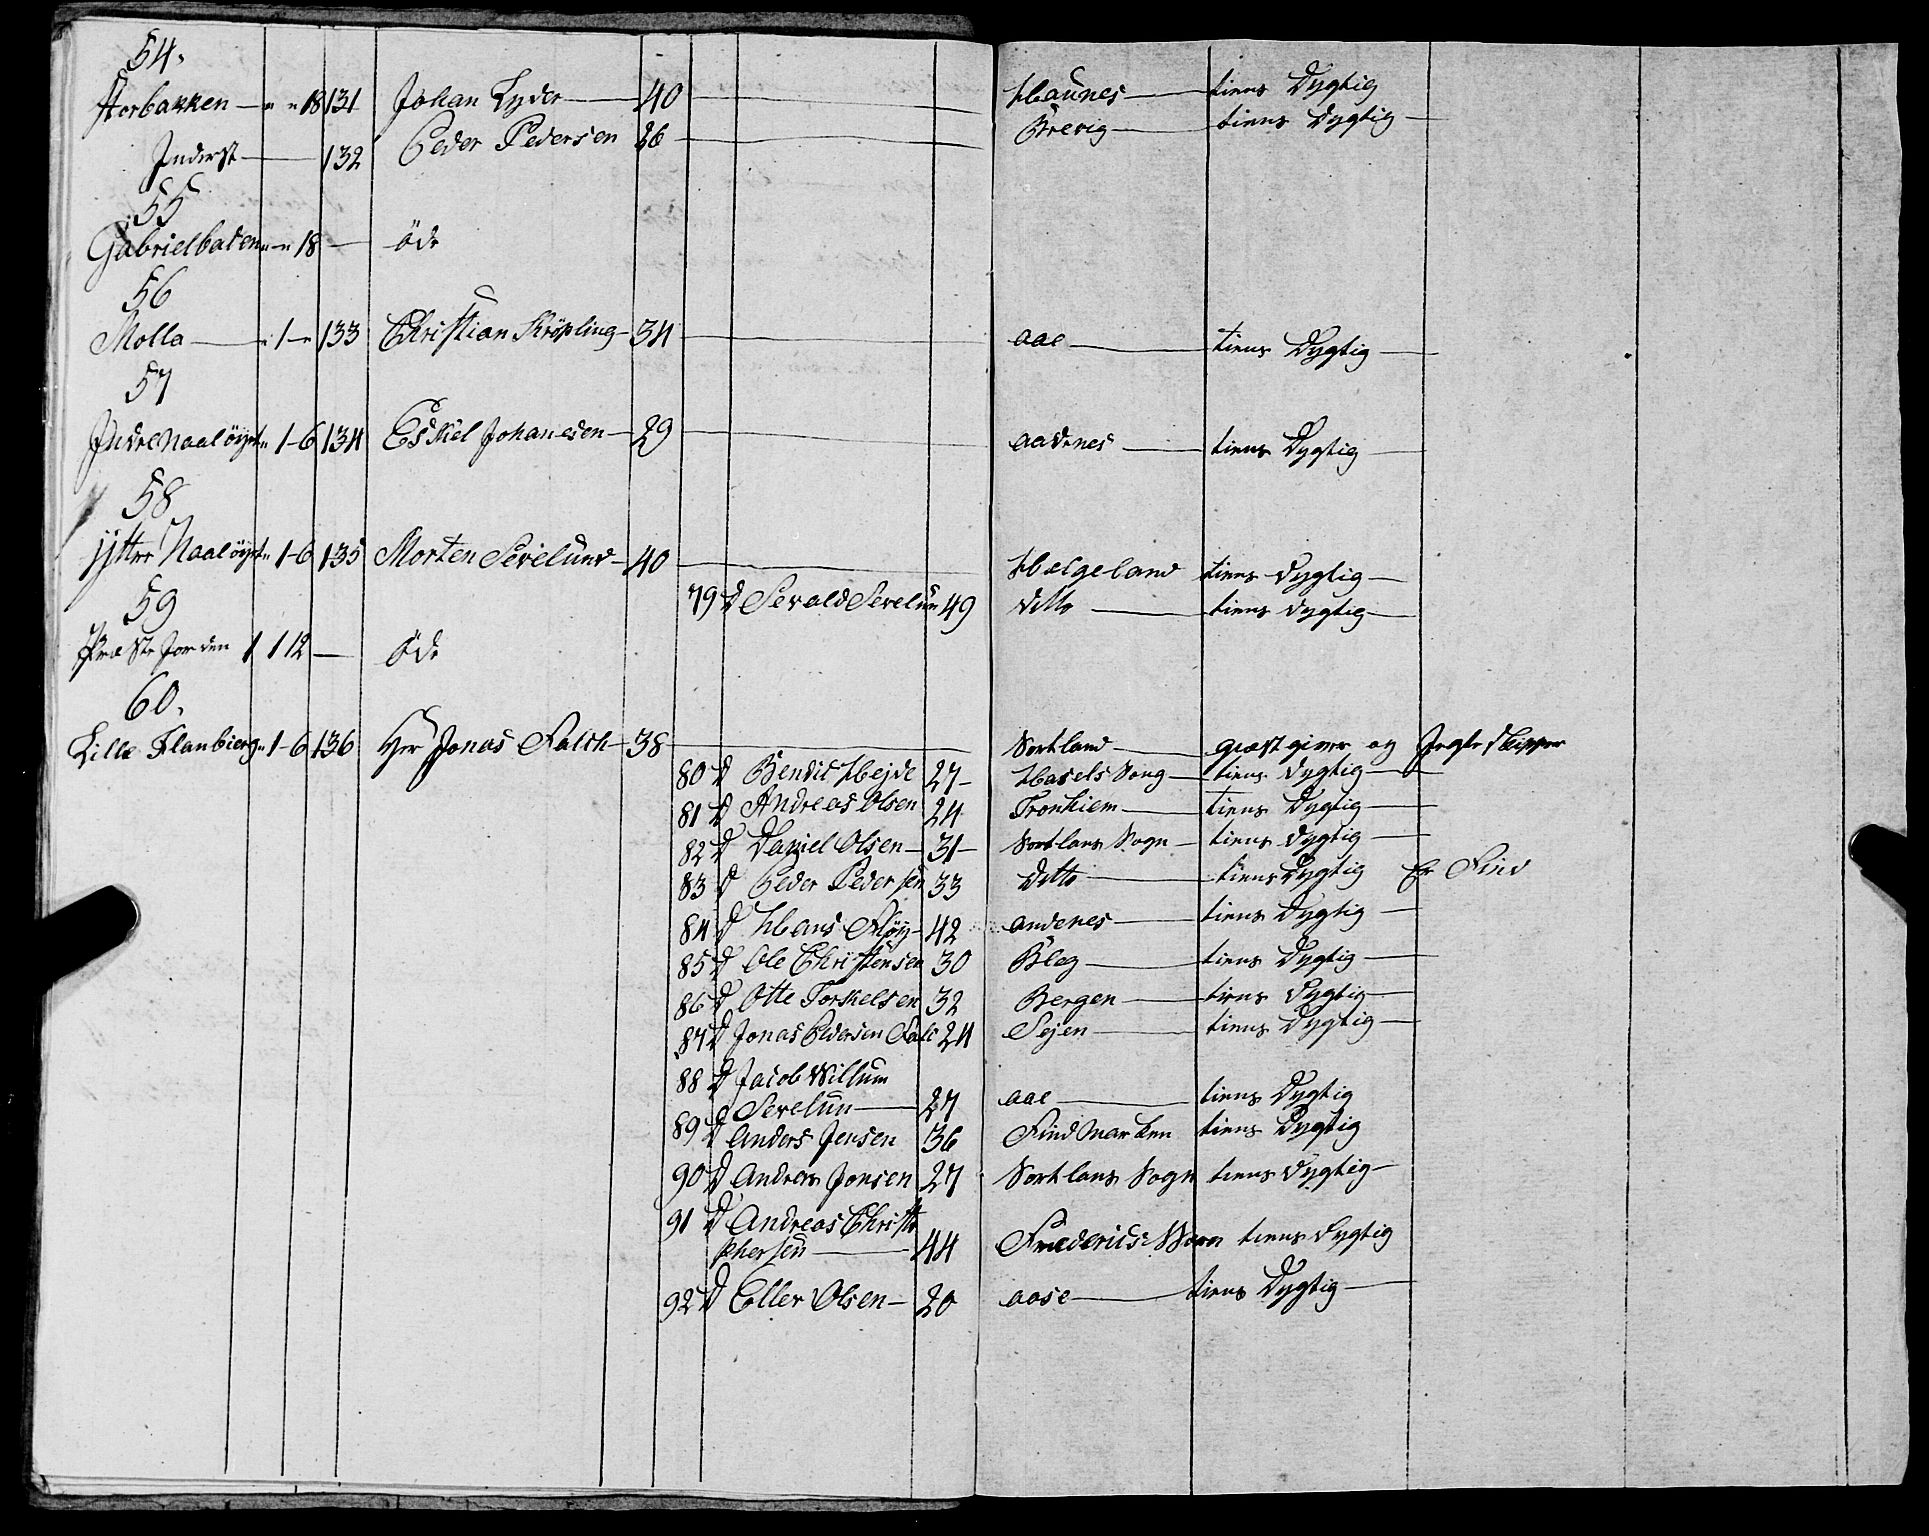 54.
Storbakken — " " 18 131 Johan Lyder — 40 — Haunes — tiens Dygtig
Inderst — 132 Peder Pedersen 26 — Brevig — tiens Dygtig —
55
Gabrielbaden " — " 18 — öde
56
Molla — " 1 — " 133 Christian Kröpling — 34 — aae — tiens Dygtig —
57
Indre Naalöyet " 1 - 6 134 Eskiel Johanesen — 29 — aadnes — tiens Dygtig —
58
Ytter Naalöyet " 1 - 6 135 Morten Sevelund — 40 — Helgeland tiens Dygtig —
79 D Sevald Sevelun 49 ditto — tiens Dygtig —
59
Præste Jorden 1 1 12 — öde
60.
Lille Flanbierg " 1 - 6 136 Hr Jonas Falch — 38 — Sortland — giæstgiver og Jægte Skipper
80 D Bendic Hejde 27 — Hasels Song — tiens Dygtig —
81 D Andreas Olsen 24 Tronhiem — tiens Dygtig —
82 D Daniel Olsen — 31 — Sortlans Sogn — tiens Dygtig —
83 D Peder Pedersen 33 Ditto — tiens Dygtig Er Find
84 D Hans Fløy — 42 andenes — tiens Dygtig —
85 D Ole Christensen 30 Bleg — tiens Dygtig —
86 D Otte Torkelsen 32 Bergen — tiens Dygtig —
87 D Jonas Pedersen Falc 24 Sejen — tiens Dygtig —
88 D Jacob Willum
Sevelun — 27 aae — tiens Dygtig
89 D Anders Jensen 36 Findmarken tiens Dygtig
90 D Andreas Jonsen 27 Sortlans Sogn tiens Dygtig —
91 D Andreas Christo
phersen — 44 Friederichs Wærn tiens Dygtig
92 D Eller Olsen — 20 aase — tiens Dygtig —